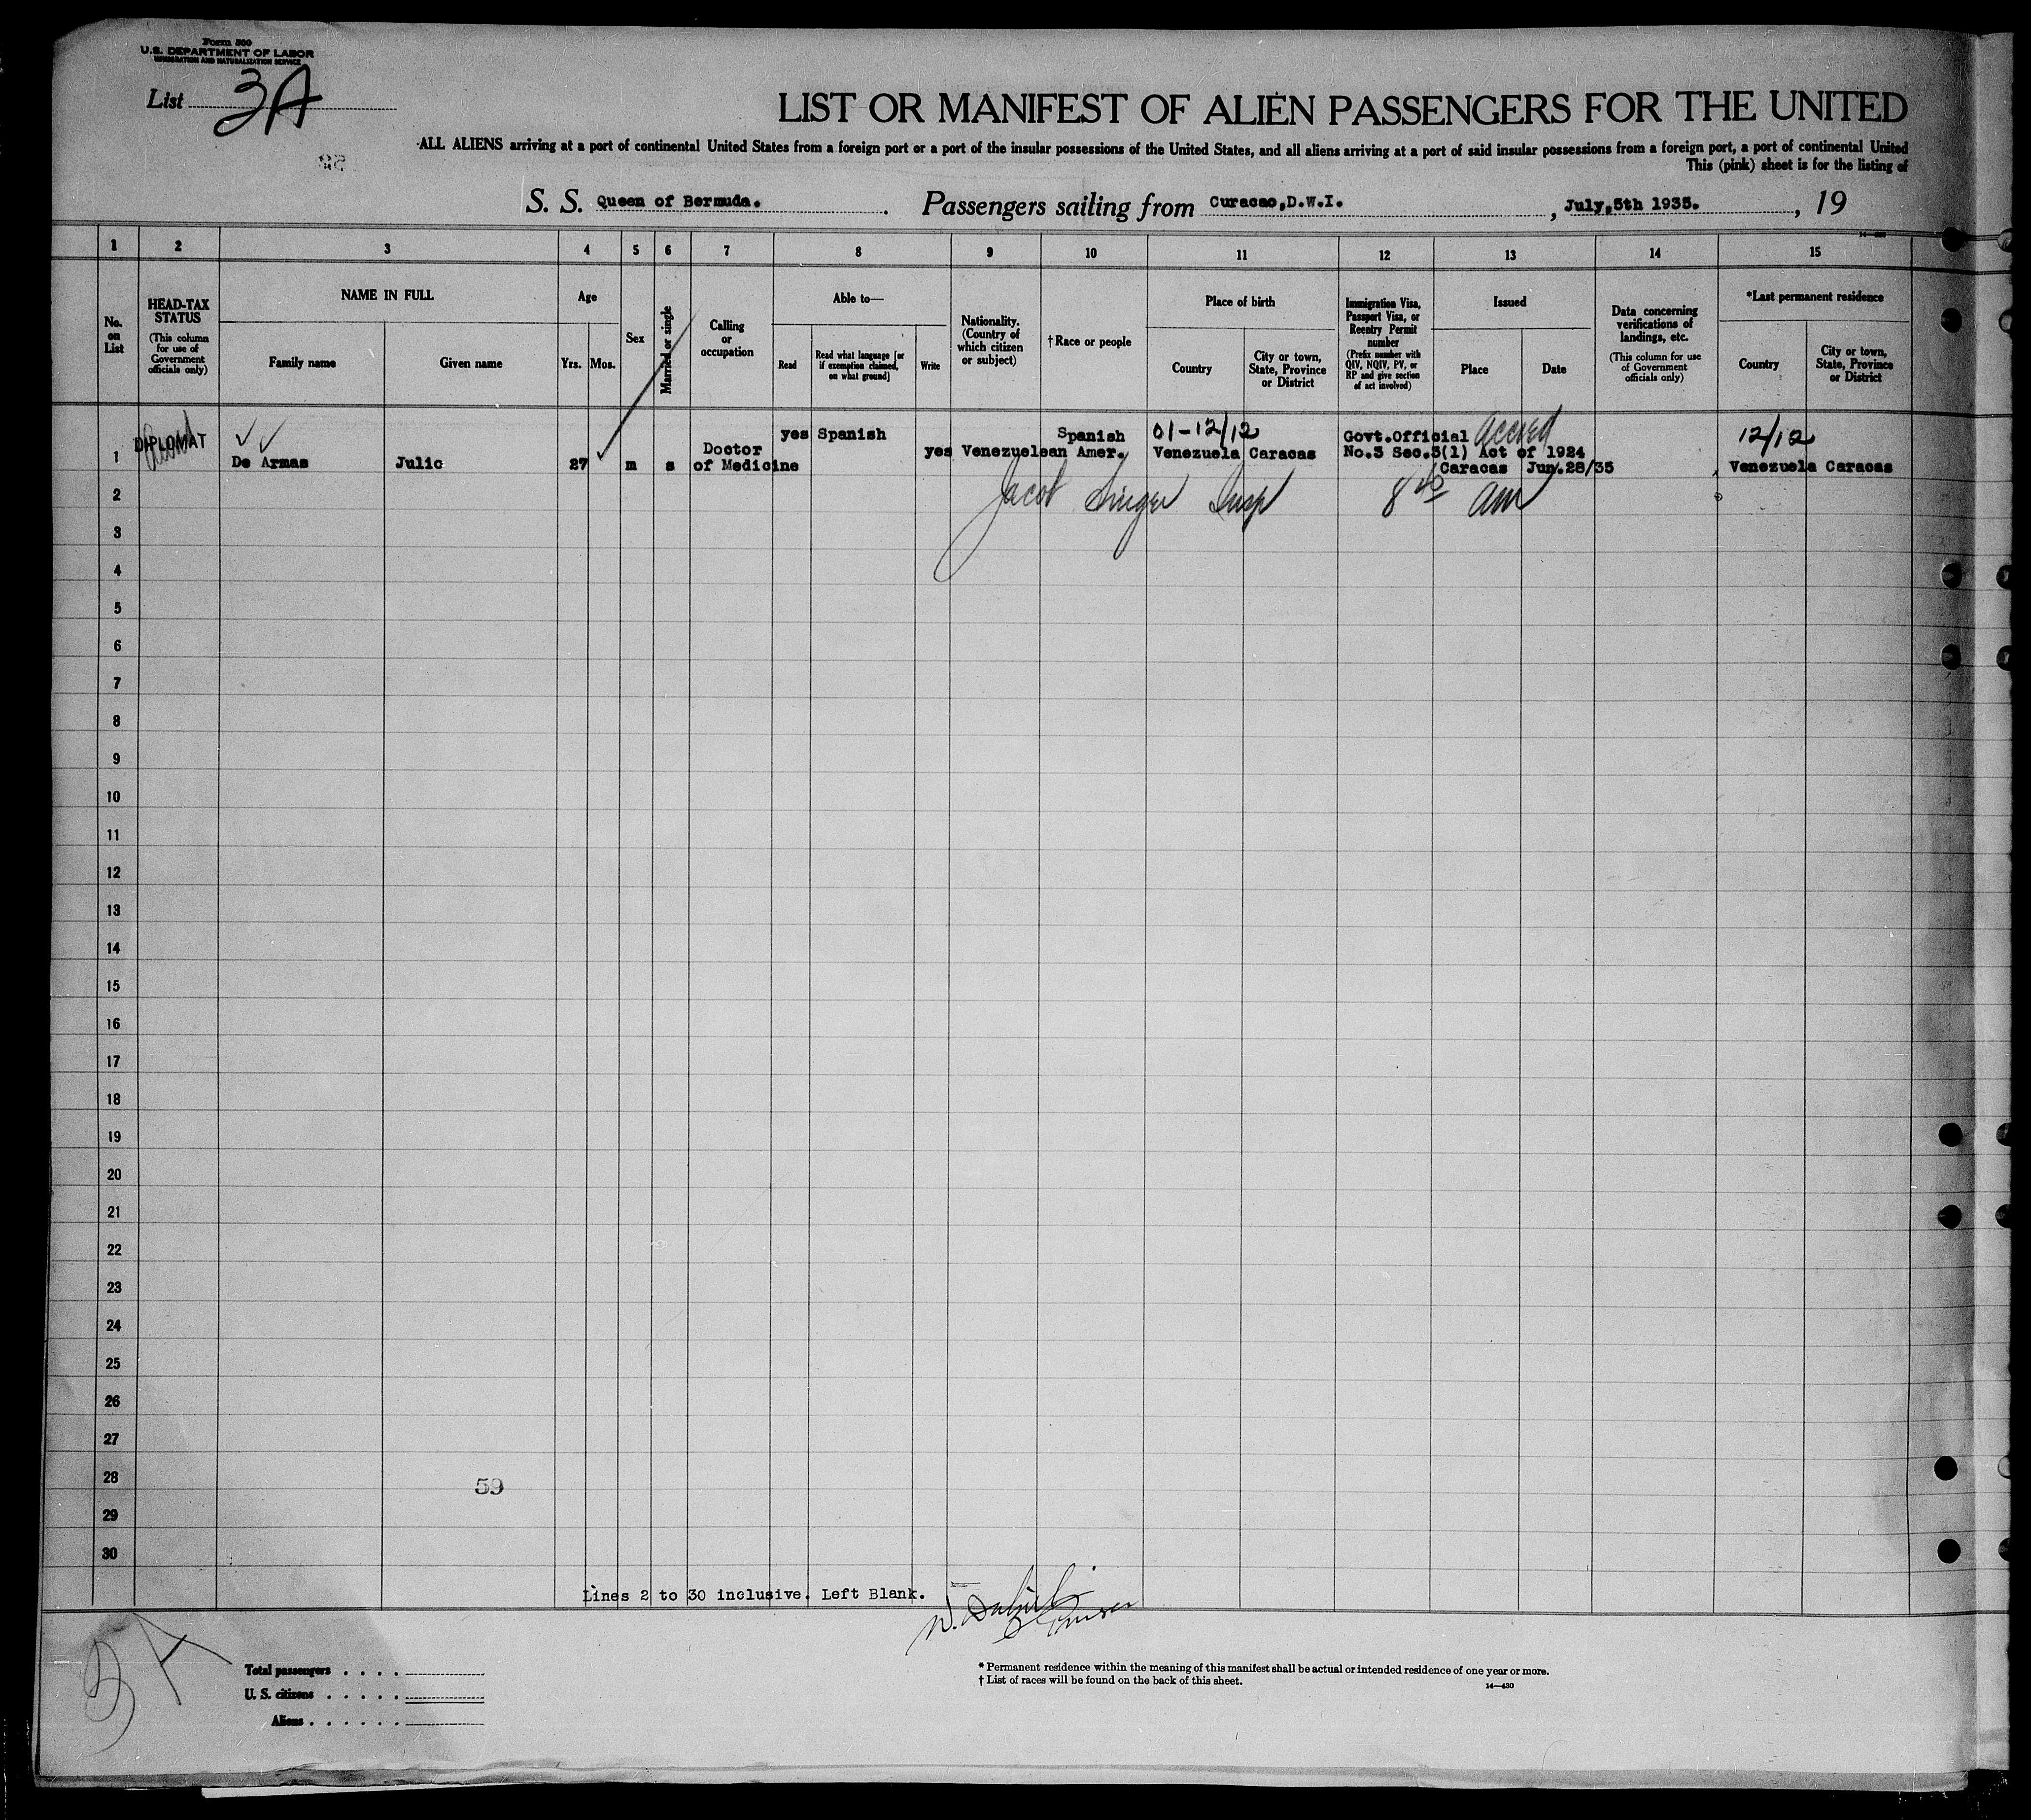 Form 500
U.S. DEPARTMENT OF LABOR
IMMIGRATION AND NATURALIZATION SERVICE
List 3A
LIST OR MANIFEST OF ALIEN PASSENGERS FOR THE UNITED
ALL ALIENS arriving at a port of continental United States from a foreign port or a port of the insular possessions of the United States, and all aliens arriving at a port of said insular possessions from a foreign port, a port of continental United
This (pink) sheet is for the listing of
S. S. Queen of Bermuda. Passengers sailing from Curacao,D.W.I. , July,5th 1935. , 19
1 2 3 4 5 6 7 8 9 10 11 12 13 14 15
No. on List
HEAD-TAX STATUS
(This column for use of Government officials only)
NAME IN FULL
Family name Given name
Age
Yrs. Mos.
Sex
Married or single
Calling or occupation
Able to—
Read
Read what language [or if exemption claimed, on what ground]
Write
Nationality. (Country of which citizen or subject)
†Race or people
Place of birth
Country
City or town, State, Province or District
Immigration Visa, Passport Visa, or Reentry Permit number
(Prefix number with QIV, NQIV, PV, or RP and give section of act involved)
Issued
Place Date
Data concerning verifications of landings, etc.
(This column for use of Government officials only)
*Last permanent residence
Country
City or town, State, Province or District
DIPLOMAT
1 De Armas Julio 27 m s Doctor of Medicine yes Spanish yes Venezuelean Spanish Amer. 01-12/12 Venezuela Caracas Govt.Official Accred No.3 Sec.3(1) Act of 1924 Caracas Jun.28/35 12/12 Venezuela Caracas
2 Jacob Singer Insp 8 40 am
3
4
5
6
7
8
9
10
11
12
13
14
15
16
17
18
19
20
21
22
23
24
25
26
27
28
59
29
30
Lines 2 to 30 inclusive. Left Blank.
3A
Total passengers . . . .
U. S. citizens . . . . .
Aliens . . . . . .
* Permanent residence within the meaning of this manifest shall be actual or intended residence of one year or more.
† List of races will be found on the back of this sheet.
14—430